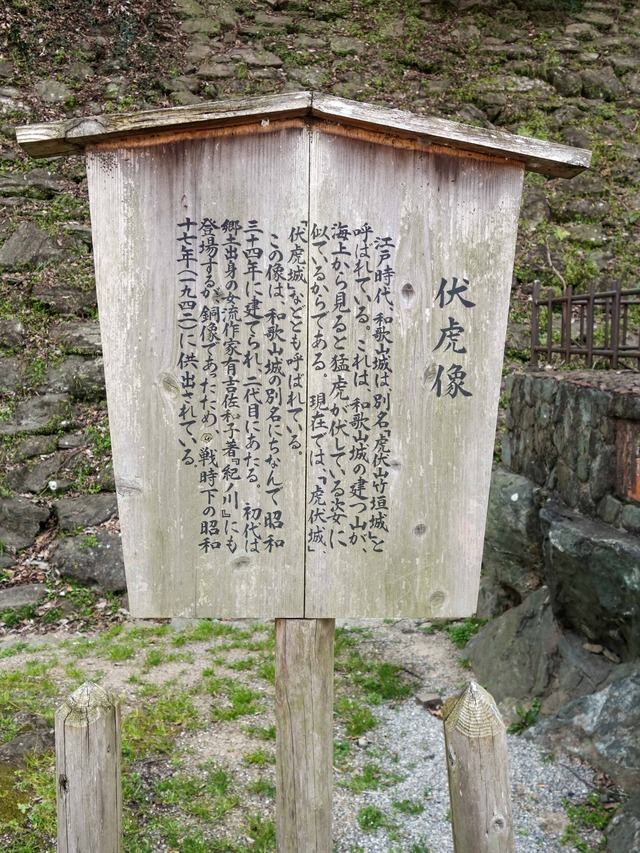 伏虎像
江戸時代、和歌山城は別名「虎伏山竹垣城」と
呼ばれている。これは、和歌山城の建つ山が、
海上から見ると猛虎が伏している姿に
似ているからである 現在では、「虎伏城」、
「伏虎城」などとも呼ばれている。
この像は、和歌山城の別名にちなんで 昭和
三十四年に建てられ、二代目にあたる。初代は
郷土出身の女流作家有吉佐和子著『紀ノ川』にも
登場するが、銅像であったため、戦時下の昭和
十七年(一九四二)に供出されている。